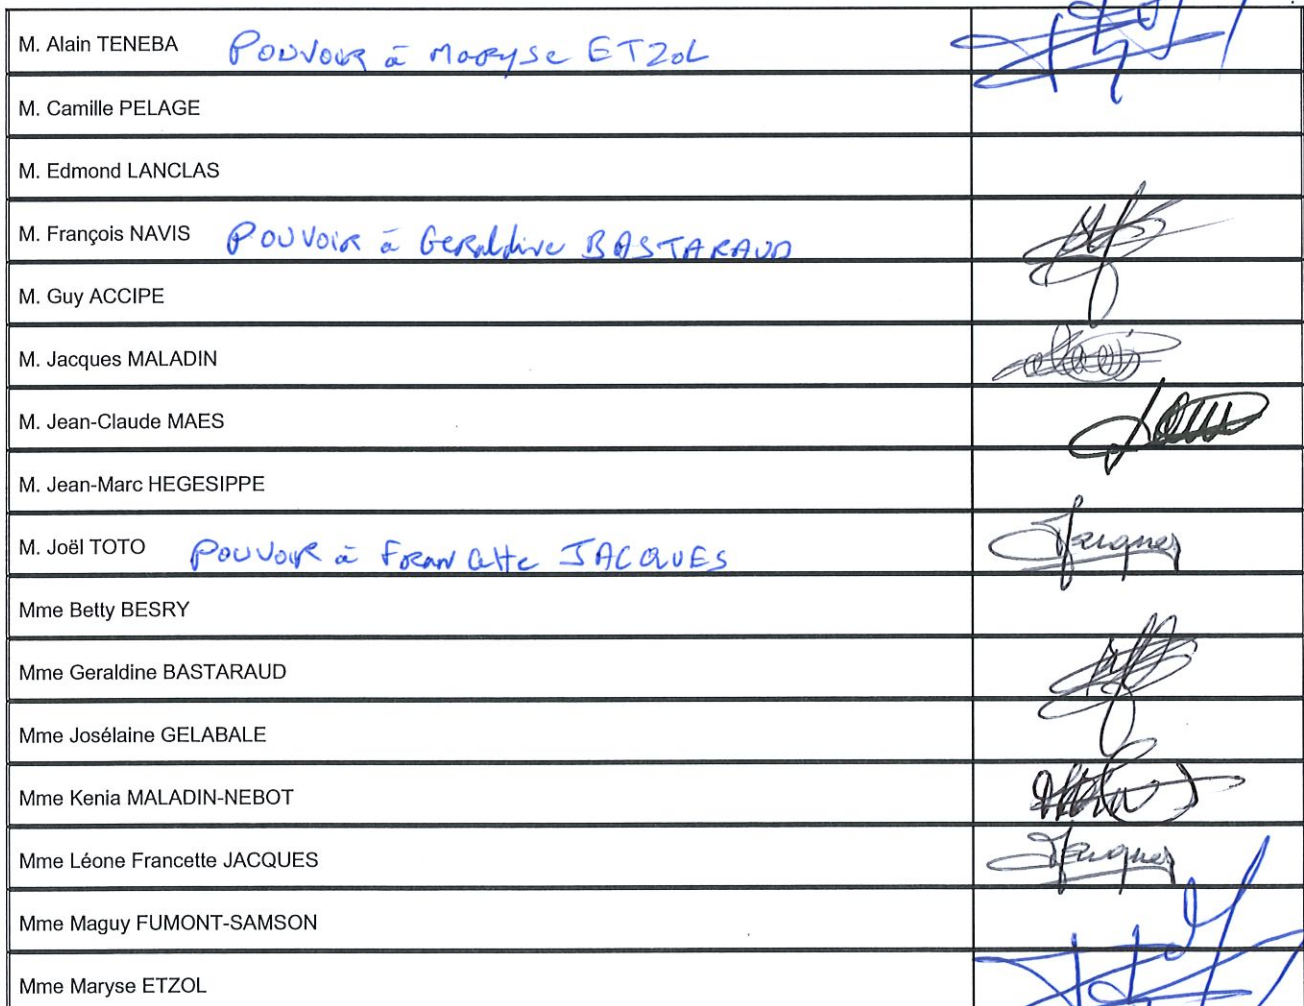 M. Alain TENEBA POUVOIR à MARYSE ETZOL
M. Camille PELAGE
M. Edmond LANCLAS
M. François NAVIS POUVOIR à Geraldine BASTARAUD
M. Guy ACCIPE
M. Jacques MALADIN
M. Jean-Claude MAES
M. Jean-Marc HEGESIPPE
M. Joël TOTO POUVOIR à Francette JACQUES
Jacques
Mme Betty BESRY
Mme Geraldine BASTARAUD
Mme Josélaine GELABALE
Mme Kenia MALADIN-NEBOT
Mme Léone Francette JACQUES
Jacques
Mme Maguy FUMONT-SAMSON
Mme Maryse ETZOL